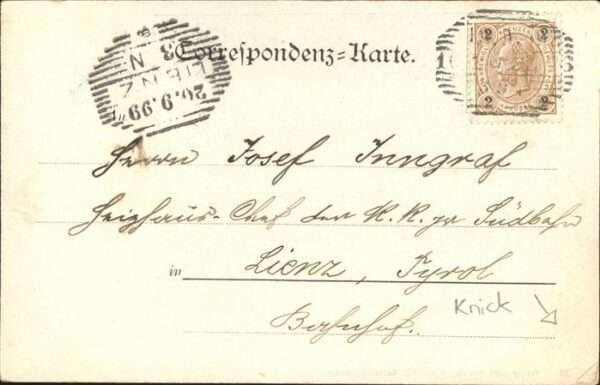 Correspondenz=Karte.
LIENZ
20.9.99
2 2
2 2
Herrn Josef Inngraf
Heizhaus-Chef der K.K. pr Südbahn
in Lienz, Tyrol
Bahnhof.
Knick